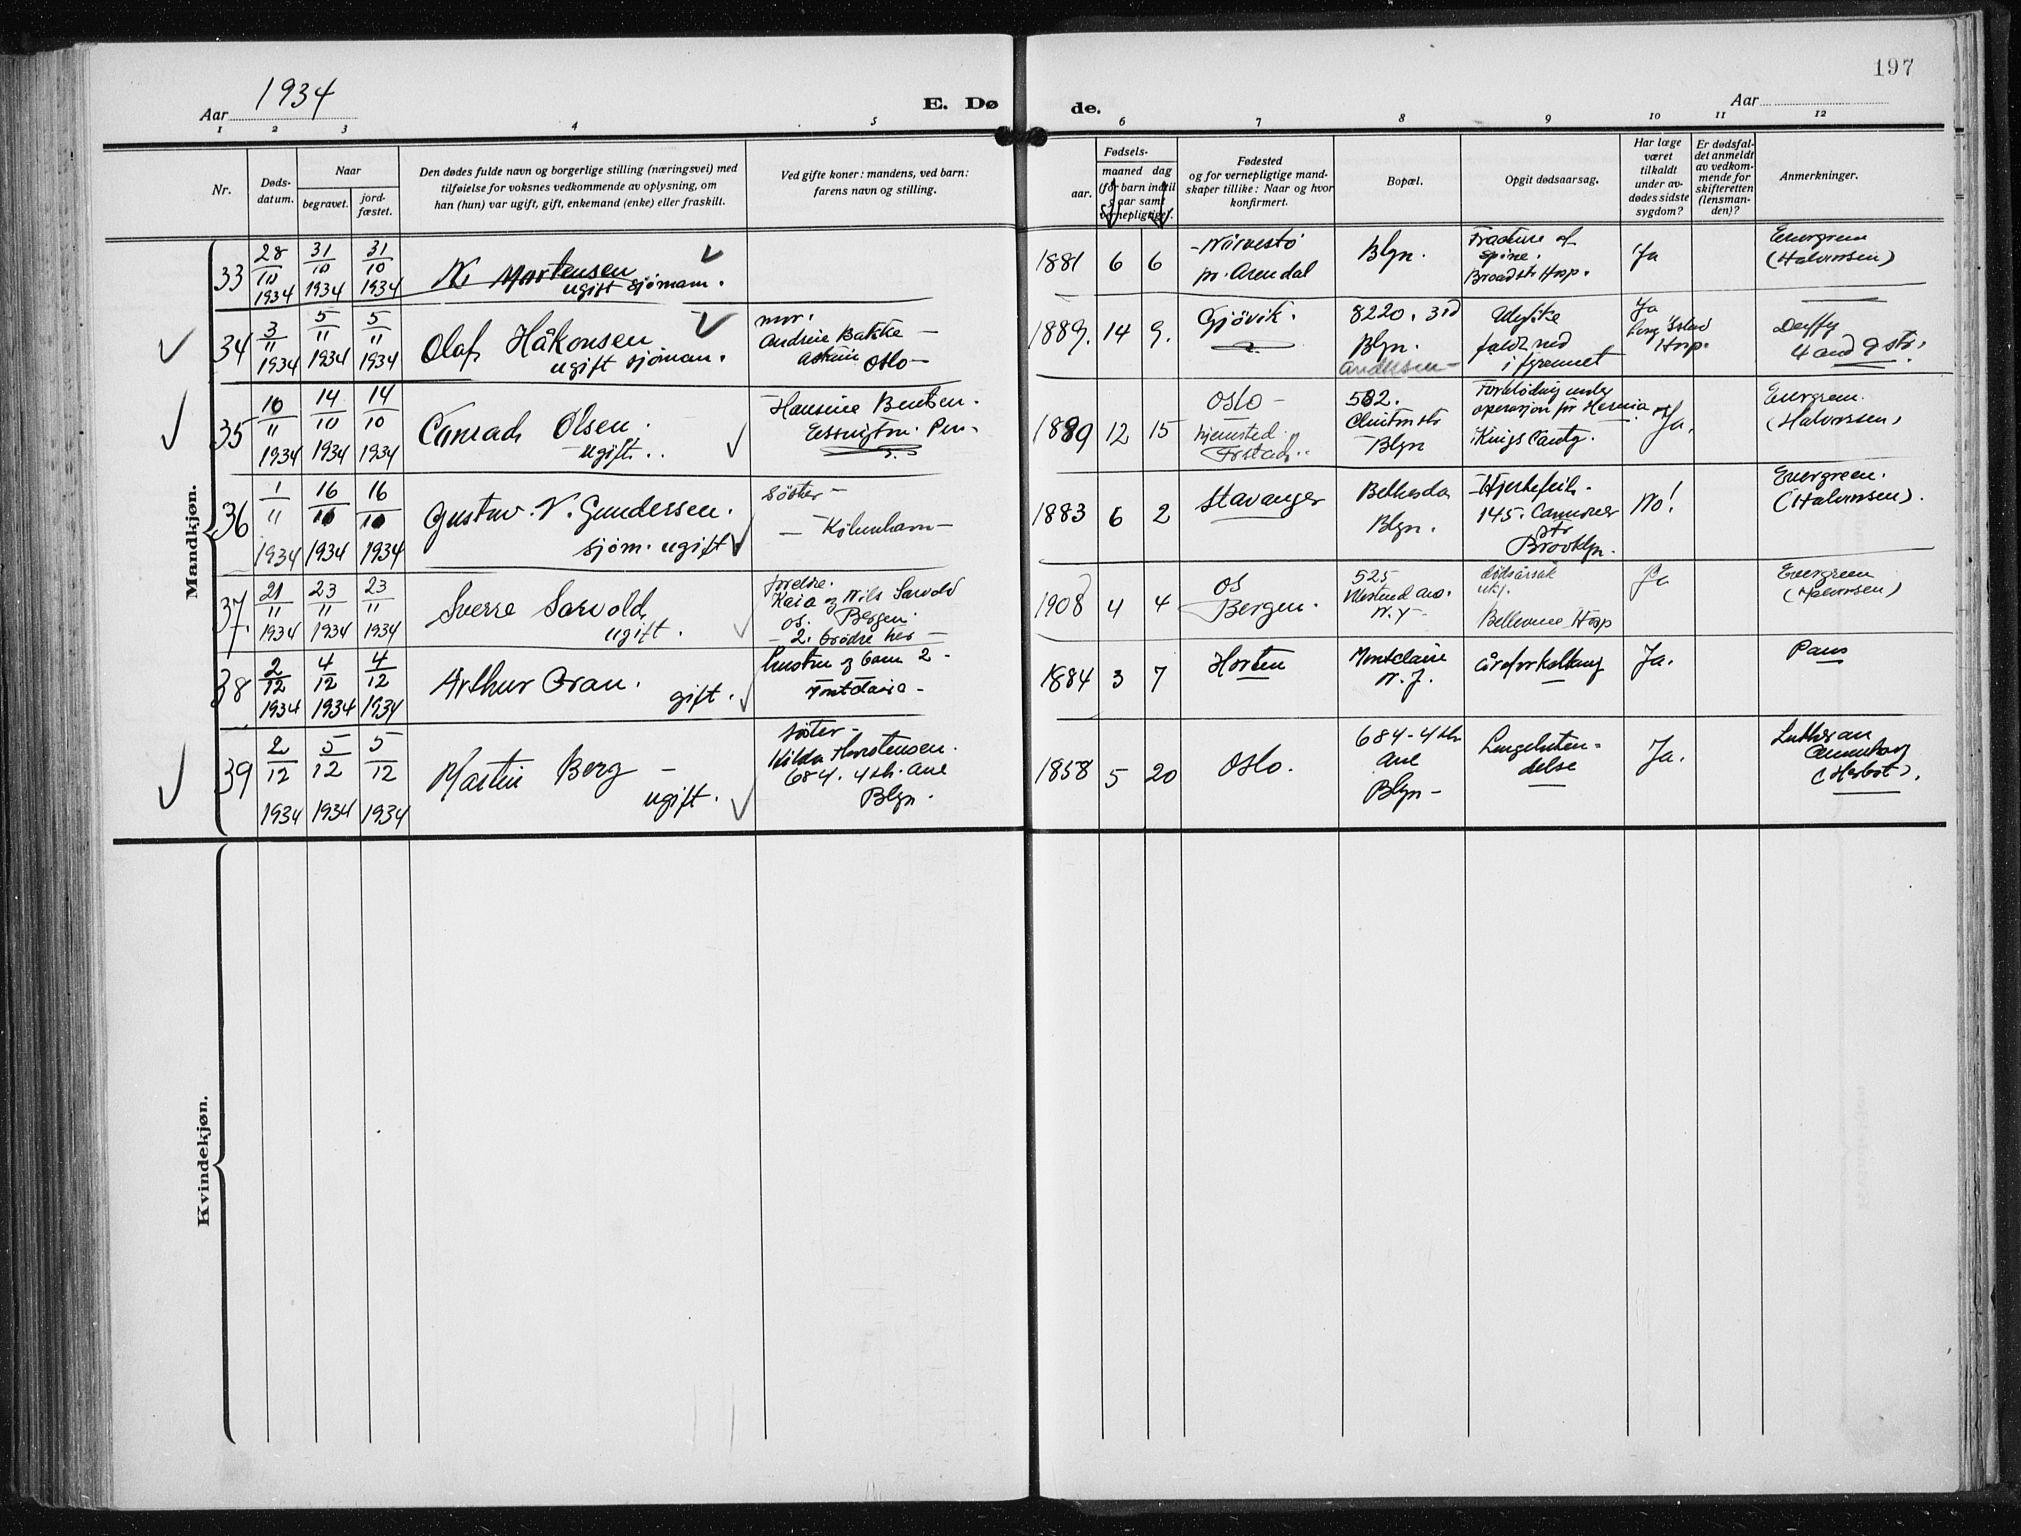 197
Aar 1934
E. Døde.
Aar
1 2 3 4 5 6 7 8 9 10 11 12
Nr.
Døds-
datum.
Naar
begravet.
jord-
fæstet.
Den dødes fulde navn og borgerlige stilling (næringsvei) med
tilføielse for voksnes vedkommende av oplysning, om
han (hun) var ugift, gift, enkemand (enke) eller fraskilt.
Ved gifte koner: mandens, ved barn:
farens navn og stilling.
Fødsels-
aar.
maaned dag
(for barn indtil
5 aar samt
vernepligtige).
Fødested
og for vernepligtige mand-
skaper tillike: Naar og hvor
konfirmert.
Bopæl.
Opgit dødsaarsag.
Har læge
været
tilkaldt
under av-
dødes sidste
sygdom?
Er dødsfal-
det anmeldt
av vedkom-
mende for
skifteretten
(lensman-
den)?
Anmerkninger.
Mandkjøn.
33
28/10 1934
31/10 1934
31/10 1934
N. Mortensen
ugift sjømann.
1881 6 6
Nærvestø
pr. Arendal
Blyn.
Fracture of
spine.
Broadstr Hosp.
Ja
Evergreen
(Halvorsen)
34
3/11 1934
5/11 1934
5/11 1934
Olaf Håkonsen
ugift sjöman.
mor:
Andrine Bakke
Oslo
1889. 14 9.
Gjövik.
8220. 3rd
Blyn.
Andersen
Ulykke
faldt ned
i fyrrumet
Ja
Long Island
Hosp.
Duffy
4 and 9 str.
35
10/11 1934
14/10 1934
14/10 1934
Conrad Olsen.
ugift.
Hansine Bentsen.
Essington. Pen.
1889 12 15
Oslo
hjemsted
502.
Clintonstr
Blyn
Forblödning under
operasjon för Hernia
Kings County.
Ja.
Evergreen.
(Halvorsen)
36
1/11 1934
16/10 1934
16/10 1934
Gustav. N. Gundersen.
sjöm. ugift
Söster
Köbenhavn
1883 6 2
Stavanger
Bethesda
Blyn.
Hjertefeil.
145. Cannover
Str
Brooklyn.
No!
Evergreen.
(Halvorsen).
37.
21/11 1934
23/11 1934
23/11 1934
Sverre Sørvold
ugift.
foreldre.
Kaia og Nils Sørvold
Os. Bergen.
2. brödre her
1908 4 4
Os
Bergen.
525
Westend ave.
N.Y
dødsårsak
ukj.
Bellevue Hosp
Ja
Evergreen
(Halvorsen)
38
2/12 1934
4/12 1934
4/12 1934
Arthur Gran.
gift.
hustru og barn 2
Montclaire
1884 3 7
Horten
Montclaire
N.J.
åreforkalkning
Ja.
Paus
39
2/12 1934
5/12 1934
5/12 1934
Martin Berg
ugift.
söster
Hilda Thorstensen.
684. 4th. Ave
Blyn.
1858 5 20
Oslo.
684-4th
Ave
Blyn
Lungebeten-
delse
Ja.
Lutheran
Cemetary
(Herbst).
Kvindekjøn.